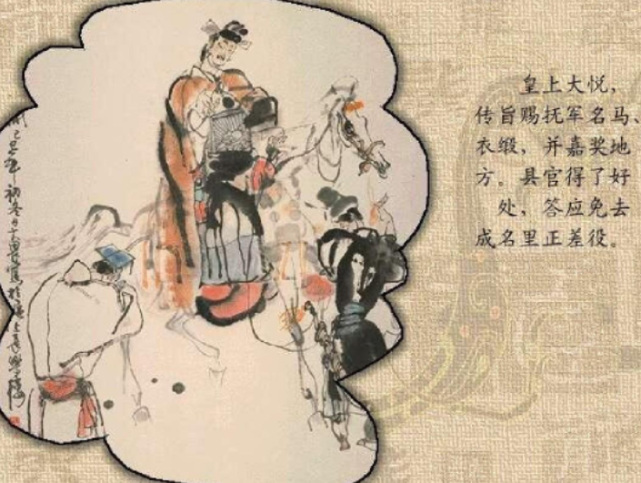 皇上大悦，
传旨赐抚军名马、
衣缎，并嘉奖地
方。县官得了好
处，答应免去
成名里正差役。